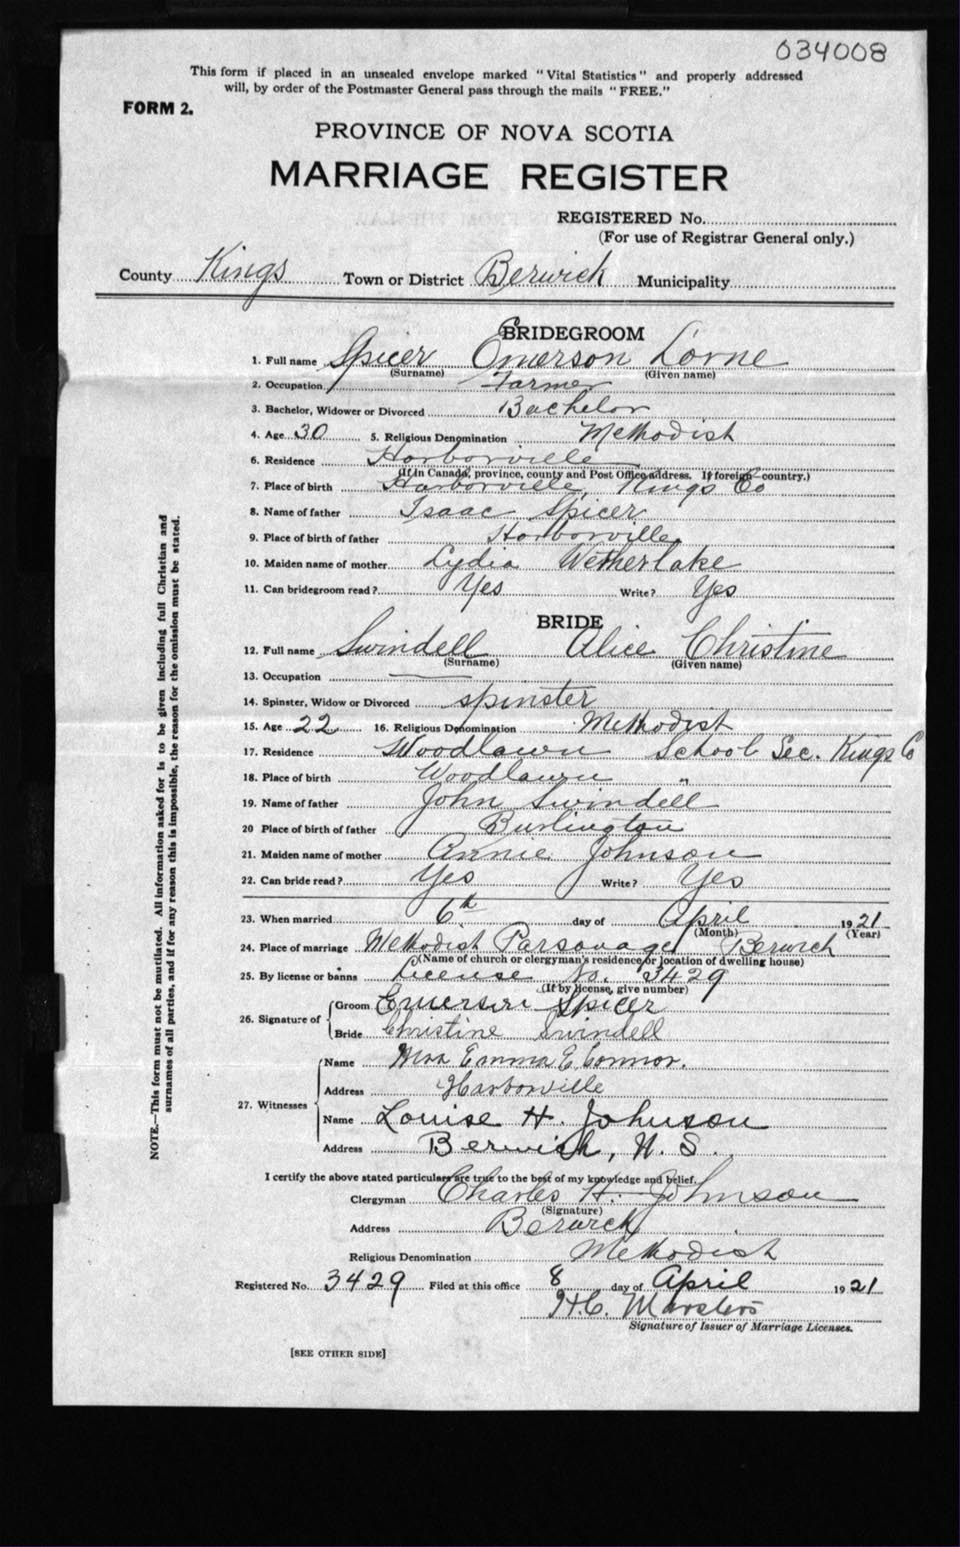 034008
This form if placed in an unsealed envelope marked "Vital Statistics" and properly addressed
will, by order of the Postmaster General pass through the mails "FREE."
FORM 2.
PROVINCE OF NOVA SCOTIA
MARRIAGE REGISTER
REGISTERED No.
(For use of Registrar General only.)
County Kings Town or District Berwick Municipality
BRIDEGROOM
1. Full name Spicer Emerson Lorne
(Surname) (Given name)
2. Occupation Farmer
3. Bachelor, Widower or Divorced Bachelor
4. Age 30 5. Religious Denomination Methodist
6. Residence Harborville
(If in Canada, province, county and Post Office address. If foreign—country.)
7. Place of birth Harborville, Kings Co
8. Name of father Isaac Spicer
9. Place of birth of father Harborville
10. Maiden name of mother Lydia Wetherlake
11. Can bridegroom read? Yes Write? Yes
BRIDE
12. Full name Swindell Alice Christine
(Surname) (Given name)
13. Occupation
14. Spinster, Widow or Divorced spinster
15. Age 22 16. Religious Denomination Methodist
17. Residence Woodlawn School Sec. Kings Co
18. Place of birth Woodlawn "
19. Name of father John Swindell
20 Place of birth of father Burlington
21. Maiden name of mother Annie Johnson
22. Can bride read? Yes Write? Yes
23. When married 6th day of April 1921
(Month) (Year)
24. Place of marriage Methodist Parsonage Berwick
(Name of church or clergyman's residence or location of dwelling house)
25. By license or banns License No. 3429
(If by license, give number)
26. Signature of Groom Emerson Spicer
Bride Christine Swindell
27. Witnesses Name Mrs Emma E. Connor.
Address Harborville
Name Louise H. Johnson
Address Berwick, N. S.
I certify the above stated particulars are true to the best of my knowledge and belief.
Clergyman Charles H. Johnson
(Signature)
Address Berwick
Religious Denomination Methodist
Registered No. 3429 Filed at this office 8 day of April 1921
H.C. Marsters
Signature of Issuer of Marriage Licenses.
[SEE OTHER SIDE]
NOTE.—This form must not be mutilated. All information asked for is to be given including full Christian and
surnames of all parties, and if for any reason this is impossible, the reason for the omission must be stated.